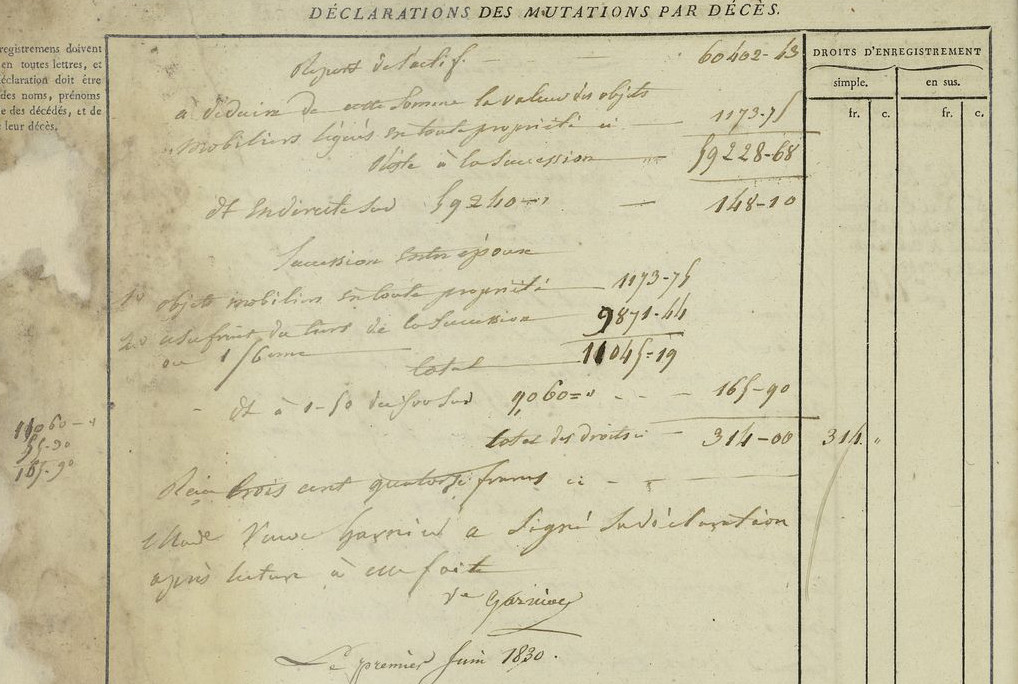 DÉCLARATIONS DES MUTATIONS PAR DÉCÈS.
registremens doivent
en toutes lettres, et
éclaration doit être
des noms, prénoms
e des décédés, et de
leur décès.
DROITS D'ENREGISTREMENT
simple. en sus.
fr. c. fr. c.
Report de l'actif. 60402-43
à déduire de cette somme la valeur des objets
mobiliers légués en toute propriété ci 1173-75
Reste à la succession 59228-68
dt en directe sur 59240 148-10
Succession entre époux
1° objets mobiliers en toute propriété 1173-75
2° usufruit du tiers de la succession 9871-44
ou 1/6eme
total 11045-19
dt à 1-50 du 100 sur 060 165-90
total des droits 314-00 314 "
11060
55-30
165-90
Reçu trois cent quatorze francs ci
Made Veuve Garnier a signé sa déclaration
après lecture à elle faite
Ve Garnier
Le premier Juin 1830.